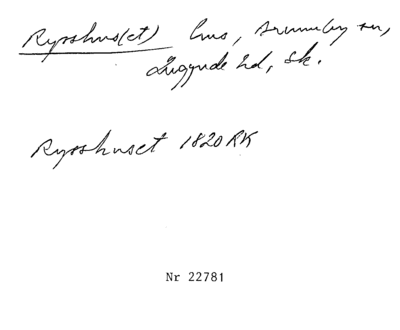 Rysshus(et) hus, Brunnby sn,
Luggude hd, Sk.
Rysshuset 1820 RK
Nr 22781